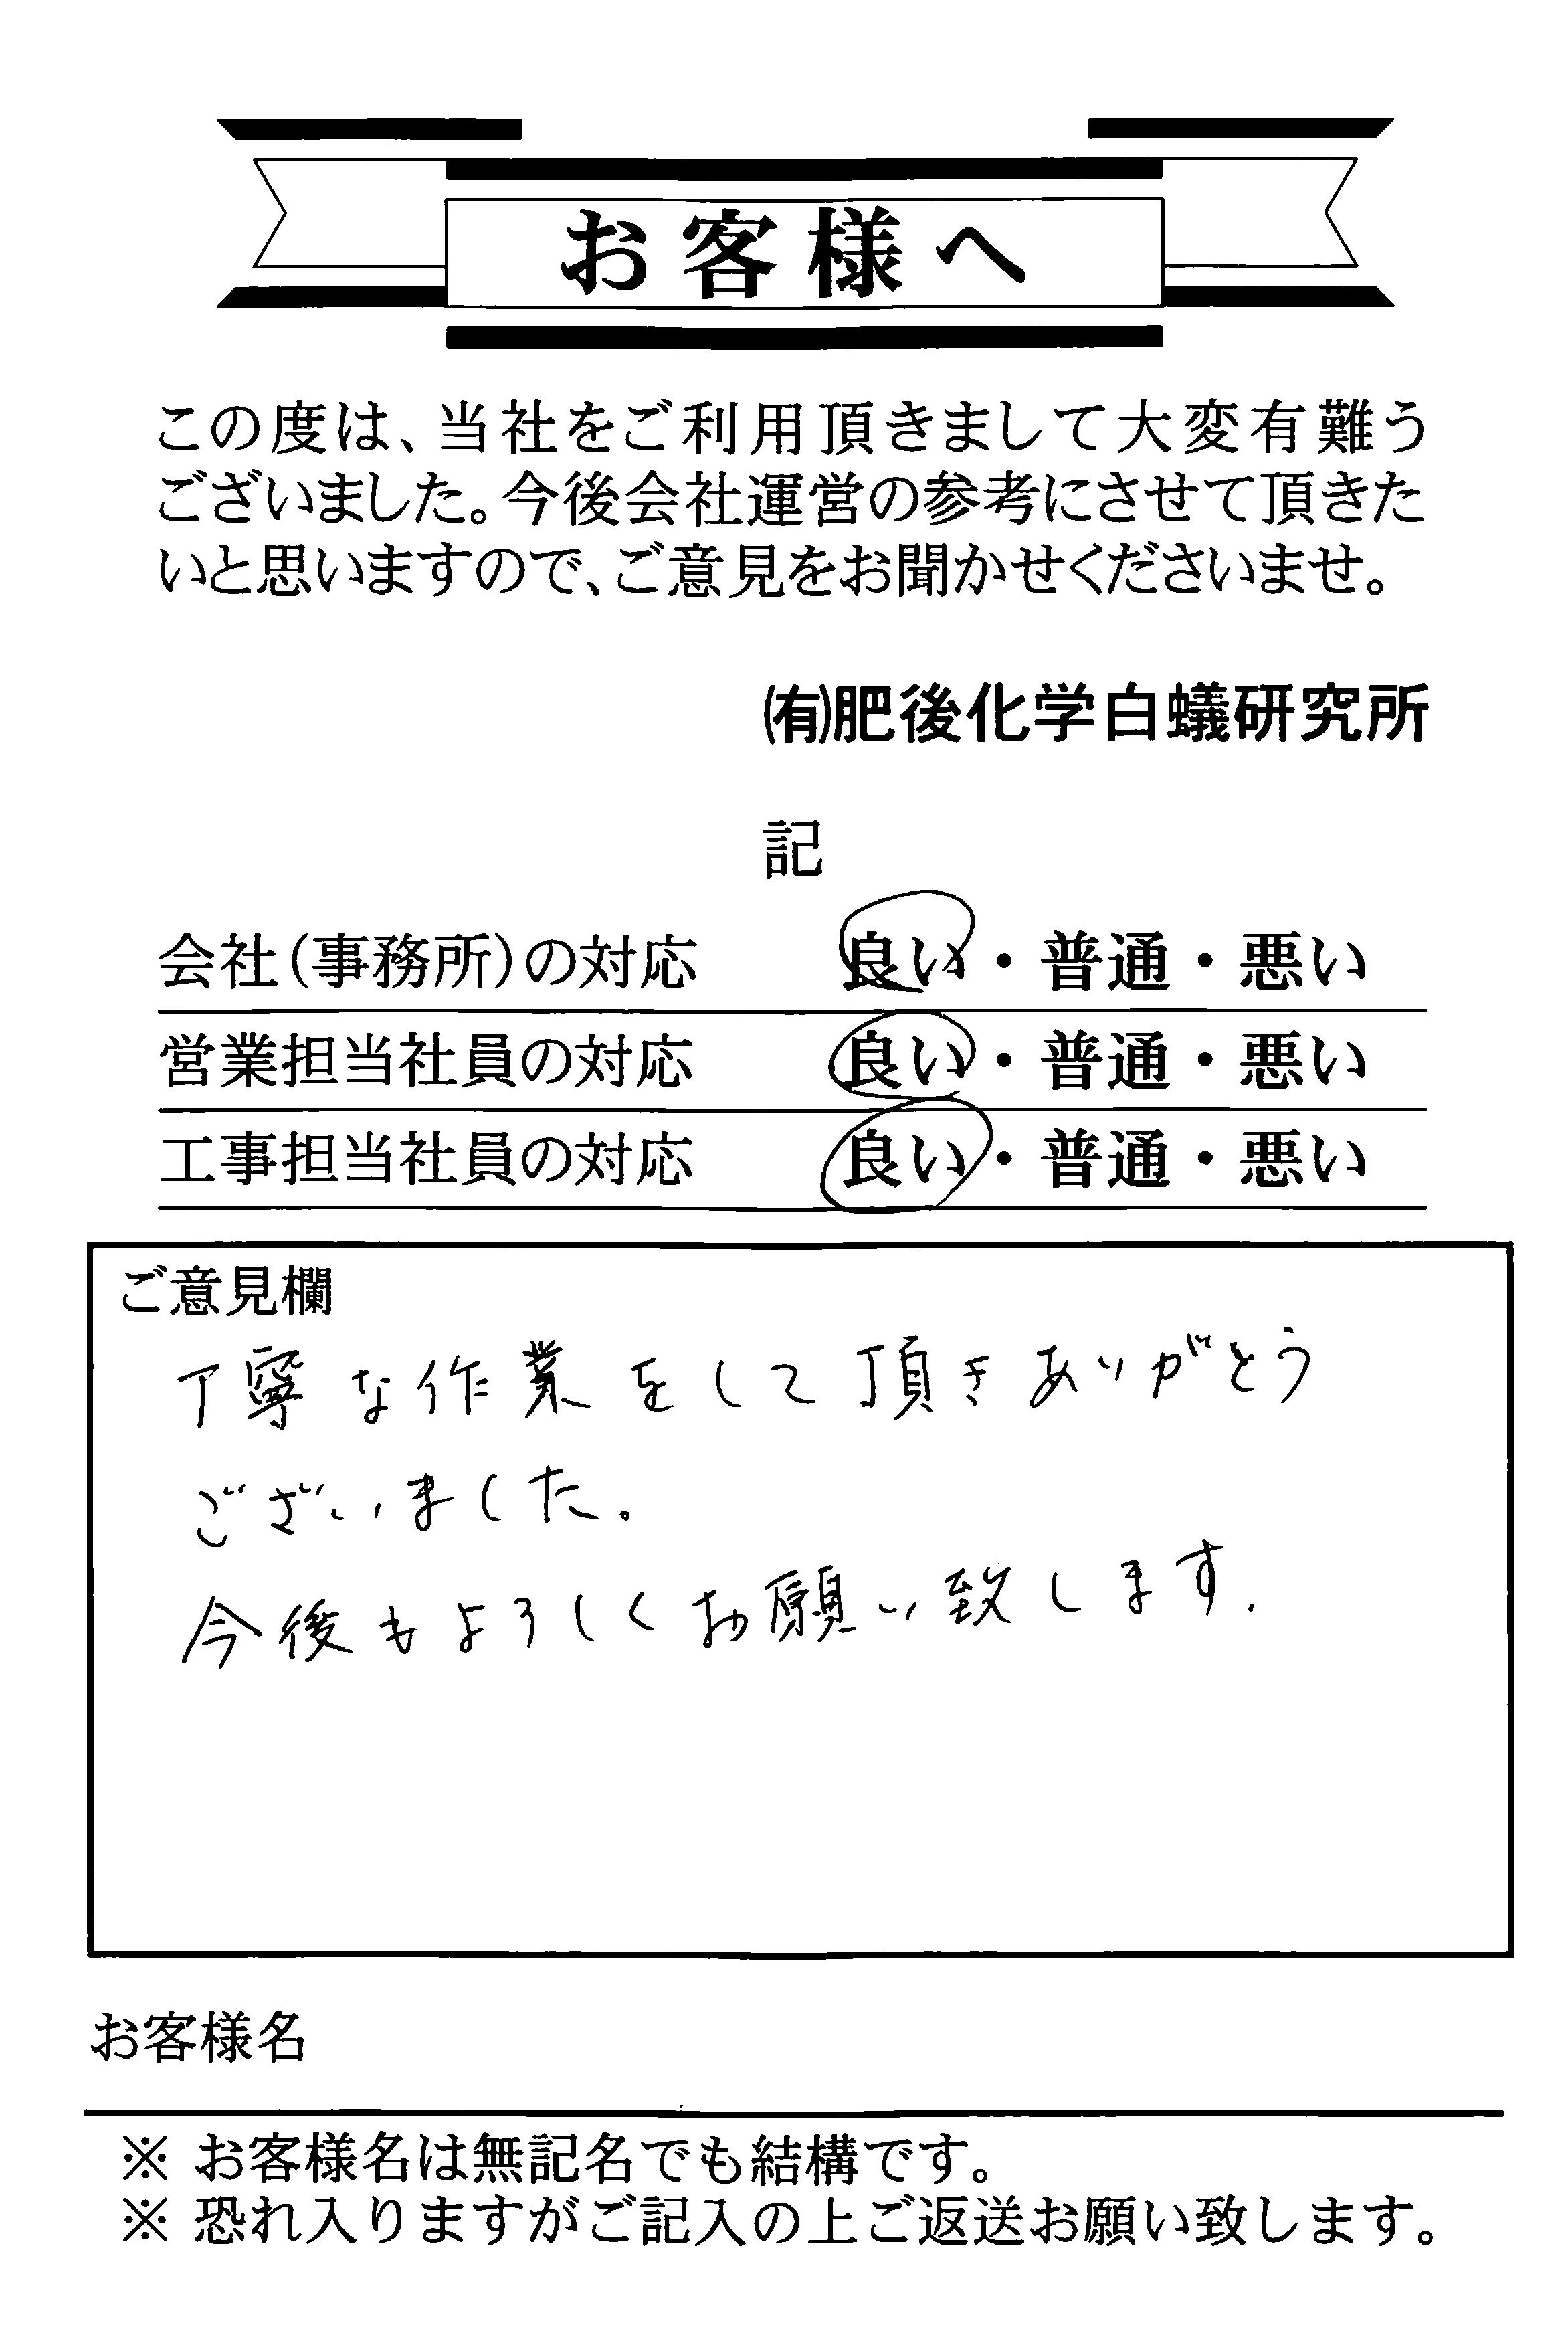 お客様へ
この度は、当社をご利用頂きまして大変有難う
ございました。今後会社運営の参考にさせて頂きた
いと思いますので、ご意見をお聞かせくださいませ。
㈲肥後化学白蟻研究所
記
会社（事務所）の対応 良い・普通・悪い
営業担当社員の対応 良い・普通・悪い
工事担当社員の対応 良い・普通・悪い
ご意見欄
丁寧な作業をして頂きありがとう
ございました。
今後もよろしくお願い致します.
お客様名
※ お客様名は無記名でも結構です。
※ 恐れ入りますがご記入の上ご返送お願い致します。